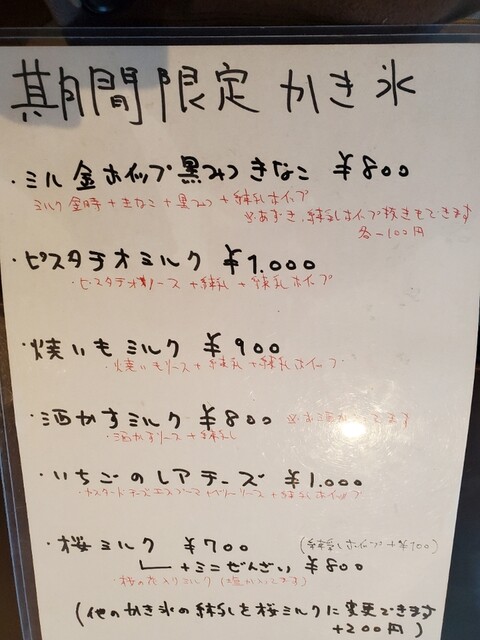 期間限定 かき氷
・ミル金ホイップ黒みつきなこ ¥800
ミルク金時+きなこ+黒みつ+練乳ホイップ
※あずき、練乳ホイップ抜きもできます
各-100円
・ピスタチオミルク ¥1.000
・ピスタチオソース+練乳+練乳ホイップ
・焼いもミルク ¥900
・焼いもソース+練乳+練乳ホイップ
・酒かすミルク ¥800 ※お酒 てます
・酒かすソース+練乳
・いちごのレアチーズ ¥1.000
・カスタードチーズエスプーマ+ベリーソース+練乳ホイップ
・桜ミルク ¥700 (練乳ホイップ+¥100)
+ミニぜんざい ¥800
・桜の花入りミルク
(他のかき氷の練乳を桜ミルクに変更できます
+200円)